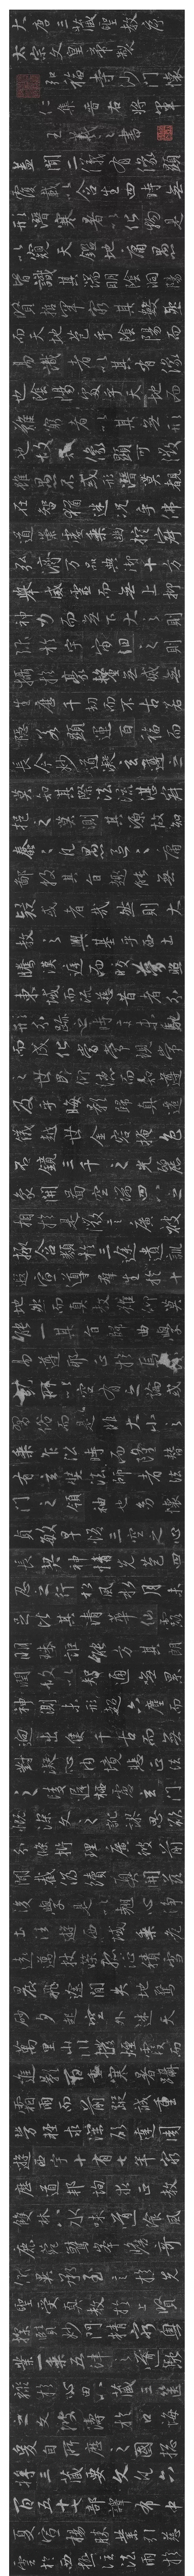 大唐三藏聖教序
太宗文皇帝製
弘福寺沙門懷
仁集晉右將軍
王羲之書
蓋聞二儀有像顯
覆載以含生四時無
形潛寒暑以化物是
以窺天鑑地庸愚
皆識其端明陰洞陽
賢哲罕窮其數然
而天地苞乎陰陽而
易識者以其有像
也陰陽處乎天地而
難窮者以其無形
也故知像顯可徵
雖愚不惑形潛莫覩
在智猶迷況乎佛
道崇虛乘幽控寂
弘濟萬品典御十方
舉威靈而無上抑
神力而無下大之則
弥於宇宙細之則
攝於豪釐無滅無
生歷千劫而不古若
隱若顯運百福而
長今妙道凝玄遵之
莫知其際法流湛寂
挹之莫測其源故知
蠢蠢凡愚區區庸
鄙投其旨趣能無
疑惑者哉然則大
教之興基乎西土
騰漢庭而皎夢照
東域而流慈昔者分
形分跡之時言未馳
而成化當常現常
之世民仰德而知遵
及乎晦影歸真遷
儀越世金容掩色
不鏡三千之光麗
象開圖空端四八之
相於是微言廣被
拯含類於三途遺訓
遐宣導群生於十
地然而真教難仰莫
能一其旨歸曲學
易遵邪正於焉
紛糾所以空有之論或
習俗而是非大小之
乘乍沿時而隆替
有玄奘法師者法
門之領袖也幼懷
貞敏早悟三空之心
長契神情先苞四
忍之行松風水月未
足比其清華仙露
明珠詎能方其朗
潤故以智通無累
神測未形超六塵而
迥出隻千古而無
對凝心內境悲正法
之陵遲栖慮玄門
慨深文之訛謬思欲
分條析理廣彼前
聞截偽續真開茲
後學是以翹心淨
土往遊西域乘危
遠邁杖策孤征積雪
晨飛途間失地驚
砂夕起空外迷天
萬里山川撥煙霞而
進影百重寒暑躡
霜雨而前蹤誠重
勞輕求深願達周
遊西宇十有七年窮
歷道邦詢求正教
雙林八水味道湌風
鹿菀鷲峯瞻奇
仰異承至言於先
聖受真教於上賢
探賾妙門精窮奧
業一乘五律之道馳
驟於心田八藏三篋
之文波濤於口海
爰自所歷之國總
將三藏要文凡六
百五十七部譯布中
夏宣揚勝業引慈
雲於西極注法雨於